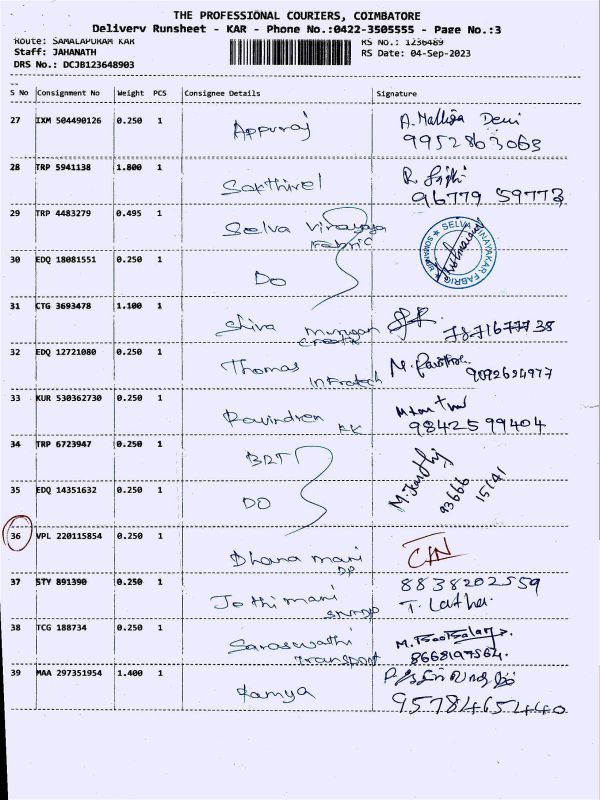 THE PROFESSIONAL COURIERS, COIMBATORE
Delivery Runsheet - KAR - Phone No.:0422-3505555 - Page No.:3
Route: SAMALAPURAM KAR RS No.: 1236489
Staff: JAHANATH RS Date: 04-Sep-2023
DRS No.: DCJB123648903
S No Consignment No Weight PCS Consignee Details Signature
27 IXM 504490126 0.250 1 Appuraj A. Malliga Devi
9952863063
28 TRP 5941138 1.800 1 Sakthivel R.
96779 59773
29 TRP 4483279 0.495 1 Selva Vinayaga SELVA VINAYAKAR FABRIC
Fabric
30 EDQ 18081551 0.250 1 DO
31 CTG 3693478 1.100 1 Shiva Murugan 7871677738
Creatx
32 EDQ 12721080 0.250 1 Thomas M.
Infratech 9092624977
33 KUR 530362730 0.250 1 Ravindren
RK 9842599404
34 TRP 6723947 0.250 1 BRTI M.
93666 15141
35 EDQ 14351632 0.250 1 DO
36 VPL 220115854 0.250 1 Dhana mani C/N
DP
37 STY 891390 0.250 1 Jothimani 8838202559
T. Latha.
38 TCG 188734 0.250 1 Saraswathi M.
Transport 8668197564.
39 MAA 297351954 1.400 1 Ramya
9578465440